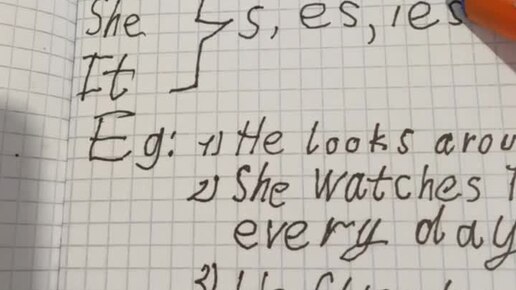 She
It } s, es, ies
Eg: 1) He looks
2) She watches
every day
3)